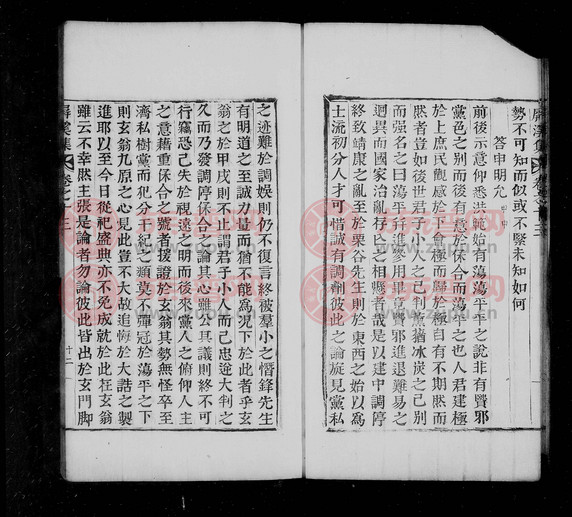 屏溪集 卷之十三
勢不可知而似或不緊未知如何
答申明允
前後示意仰悉洪範始有蕩蕩平平之說非有賢邪
黨色之別而後有意於保合而蕩平之也人君建極
於上庶民觀感於下會極而歸於極自有不期然而
然者豈如後世君子小人之已判黨猶冰炭之已別
而强名之曰蕩平幷進參用畢竟賢邪進退難易之
迥異而國家治亂存亡之相懸者哉是以建中調停
終致靖康之亂至於栗谷先生則於東西之始以爲
士流初分人才可惜誠有調劑彼此之論旋見黨私
之迹難於調娛則仍不復言終被羣小之憯鋒先生
有明道之至誠力量而猶不能爲况下於此者乎玄
翁之於甲戌則不止謂君子小人而已忠逆大判之
久而乃發調停保合之論其心雖公其議則終不可
行竊恐己失於視遠之明而後來黨人之俯仰人主
之意藉重保合之號者援證於玄翁其勢無怪卒至
濟私樹黨而犯分干紀之類莫不彈冠於蕩平之下
則玄翁九原之心見此豈不大故追悔於大誥之製
進耶以至今日從祀盛典亦不免成就於此狂玄翁
雖云不幸然主張是論者勿論彼此皆出於玄門脚
屏溪集 卷之十三 十二